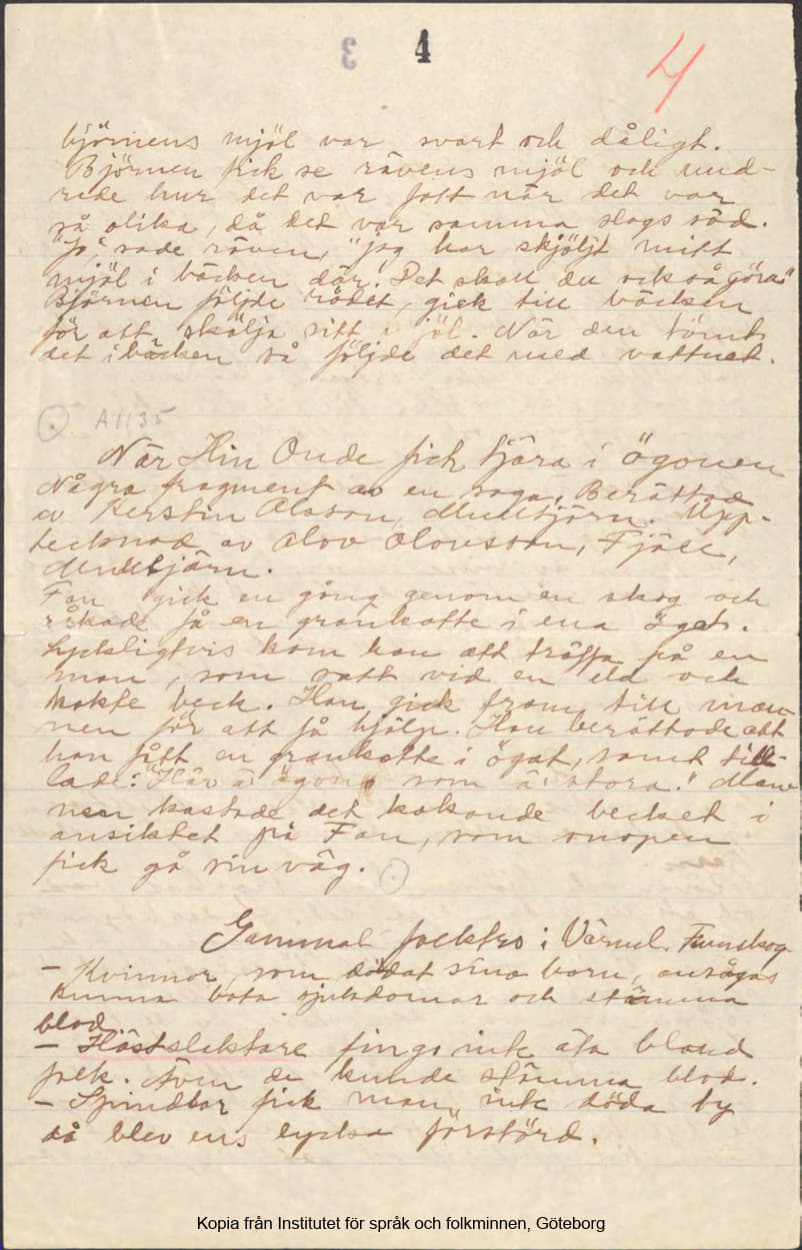 3 4 4
björnens mjöl var svart och dåligt.
Björnen fick se rävens mjöl och und-
rade hur det var fatt när det var
så olika, då det var samma slags säd.
"Jo", sade räven, "jag har skjöljt mitt
mjöl i bäcken där. Det skall du också göra"
Björnen följde rådet, gick till bäcken
för att skölja sitt mjöl. När den tömt
det i bäcken så följde det med vattnet.
A1135
När Hin Onde fick tjära i ögonen
Några fragment av en saga. Berättad
av Kerstin Olsson, Multjärn. Upp-
tecknad av Olov Olovsson, Fjäll,
Multjärn.
Fan gick en gång genom en skog och
råkade få en grankotte i ena ögat.
Lyckligtvis kom han att träffa på en
man, som satt vid en eld och
kokte beck. Han gick fram till man-
nen för att få hjälp. Han berättade att
han fått en grankotte i ögat, samt till-
lade: ögon som ä' stora." Man-
nen kastade det kokande becket i
ansiktet på Fan, som snopen
fick gå sin väg.
Gammal folktro i Värml. Finnskog
- Kvinnor, som dödat sina barn, ansågas
kunna bota sjukdomar och stämma
blod
- Hästslaktare fingo inte äta bland
folk. Även de kunde stämma blod.
- Spindlar fick man inte döda ty
då blev ens lycka förstörd.
Kopia från Institutet för språk och folkminnen, Göteborg